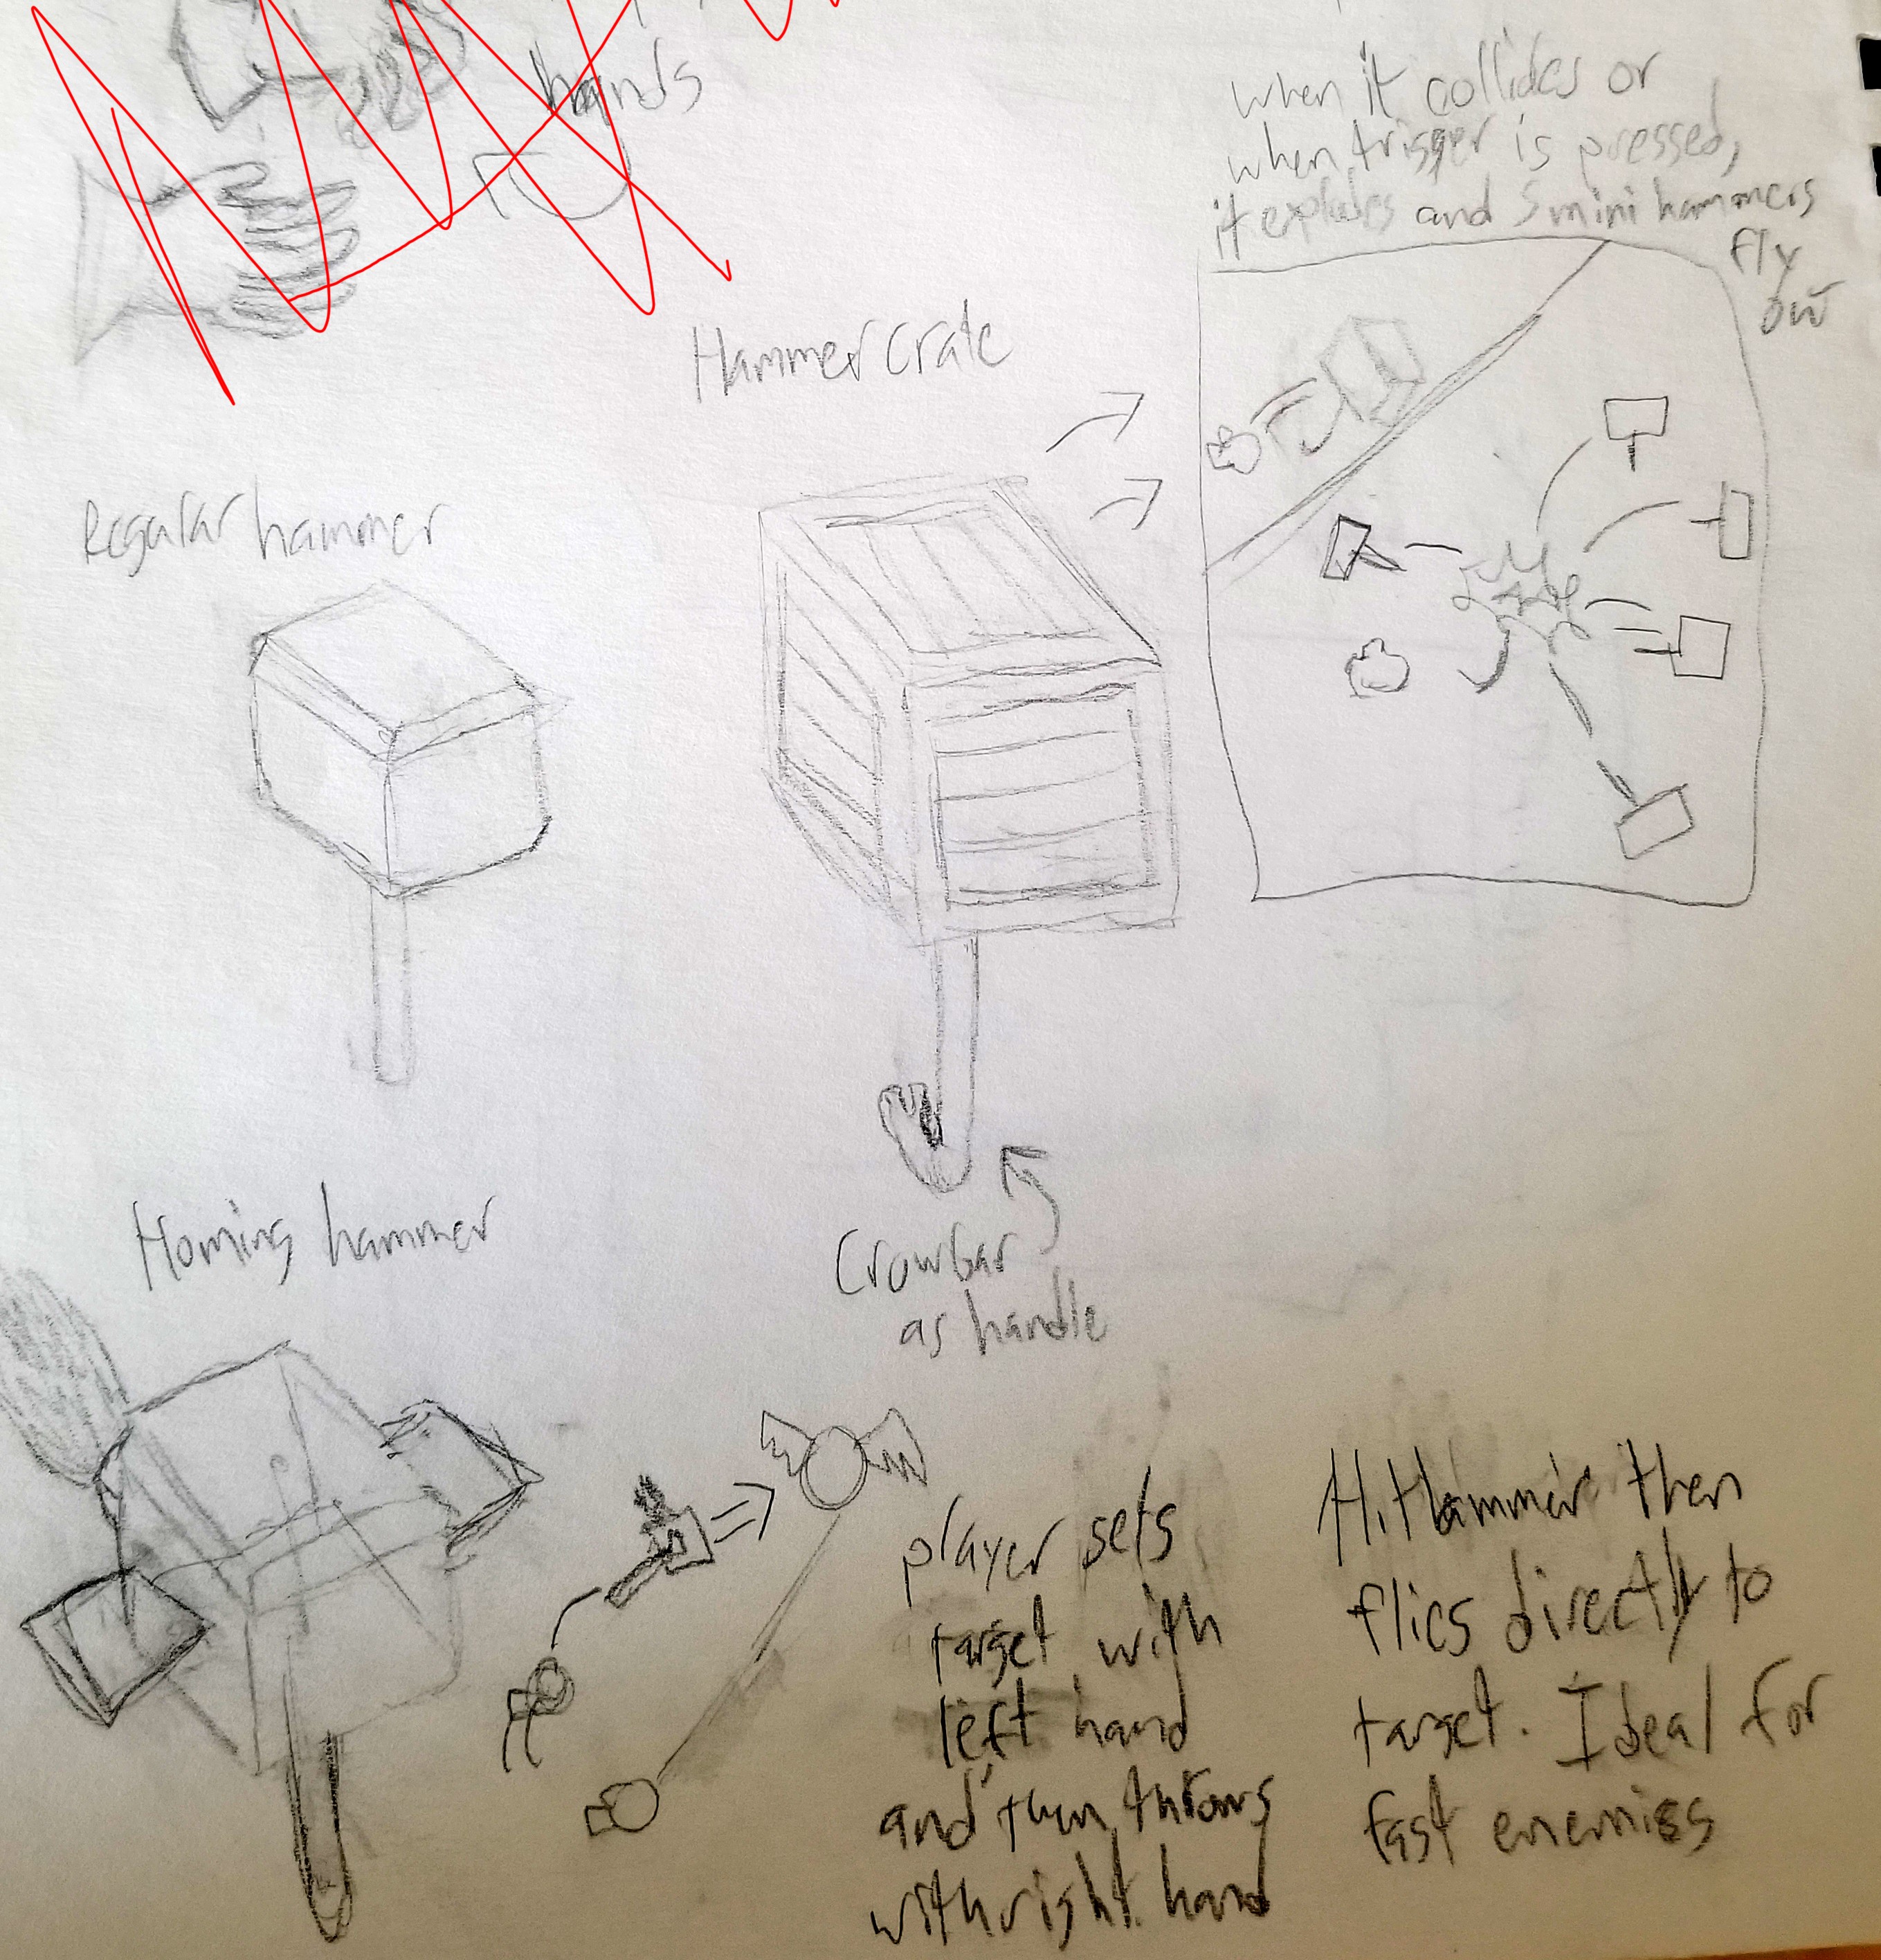 hands
when it collides or
when trigger is pressed,
it explodes and 5 mini hammers
fly
out
Hammer crate
Regular hammer
Crowbar
as handle
Homing hammer
player sets
target with
left hand
and then throws
with right hand
then
flies directly to
target. Ideal for
fast enemies